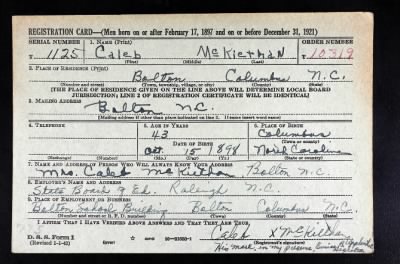 REGISTRATION CARD—(Men born on or after February 17, 1897 and on or before December 31, 1921)
SERIAL NUMBER 1. NAME (Print) ORDER NUMBER
T 1125 Caleb McKiethan T 10319
(First) (Middle) (Last)
2. PLACE OF RESIDENCE (Print)
Bolton Columbus N.C.
(Number and street) (Town, township, village, or city) (County) (State)
[THE PLACE OF RESIDENCE GIVEN ON THE LINE ABOVE WILL DETERMINE LOCAL BOARD
JURISDICTION; LINE 2 OF REGISTRATION CERTIFICATE WILL BE IDENTICAL]
3. MAILING ADDRESS
Bolton N.C.
[Mailing address if other than place indicated on line 2. If same insert word same]
4. TELEPHONE 5. AGE IN YEARS 6. PLACE OF BIRTH
43 Columbus
DATE OF BIRTH (Town or county)
Oct. 15 1898 North Carolina
(Exchange) (Number) (Mo.) (Day) (Yr.) (State or country)
7. NAME AND ADDRESS OF PERSON WHO WILL ALWAYS KNOW YOUR ADDRESS
Mrs. Caleb McKiethan Bolton N.C.
8. EMPLOYER'S NAME AND ADDRESS
State Board of Ed. Raleigh N.C.
9. PLACE OF EMPLOYMENT OR BUSINESS
Bolton School Building Bolton Columbus N.C.
(Number and street or R. F. D. number) (Town) (County) (State)
I AFFIRM THAT I HAVE VERIFIED ABOVE ANSWERS AND THAT THEY ARE TRUE.
Caleb X McKiethan
D. S. S. Form 1
(Revised 1-1-42) (over) (Registrant's signature)
His mark in my presence,